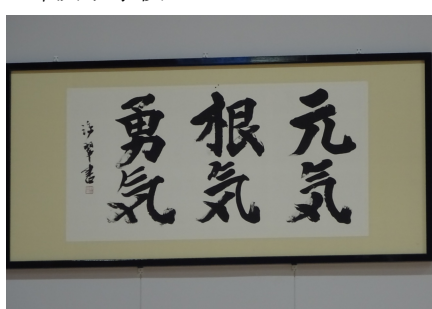 元気
根気
勇気